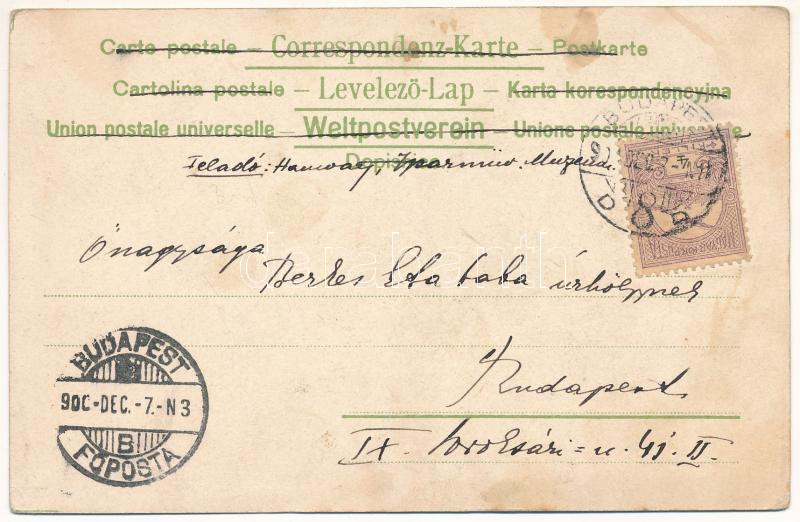 Carte postale – Correspondenz-Karte – Postkarte
Cartolina postale – Levelező-Lap – Karta korespondencyjna
Union postale universelle – Weltpostverein – Unione postale universale
Feladó: Iparműv. Muzeum
Őnagysága
Berkes Etta baba úrhölgynek
Budapest
IX. Soroksári=u. 41. II.
BUDAPEST
900-DEC.-7.-N3
B
FŐPOSTA
BUDAPEST
darabanth